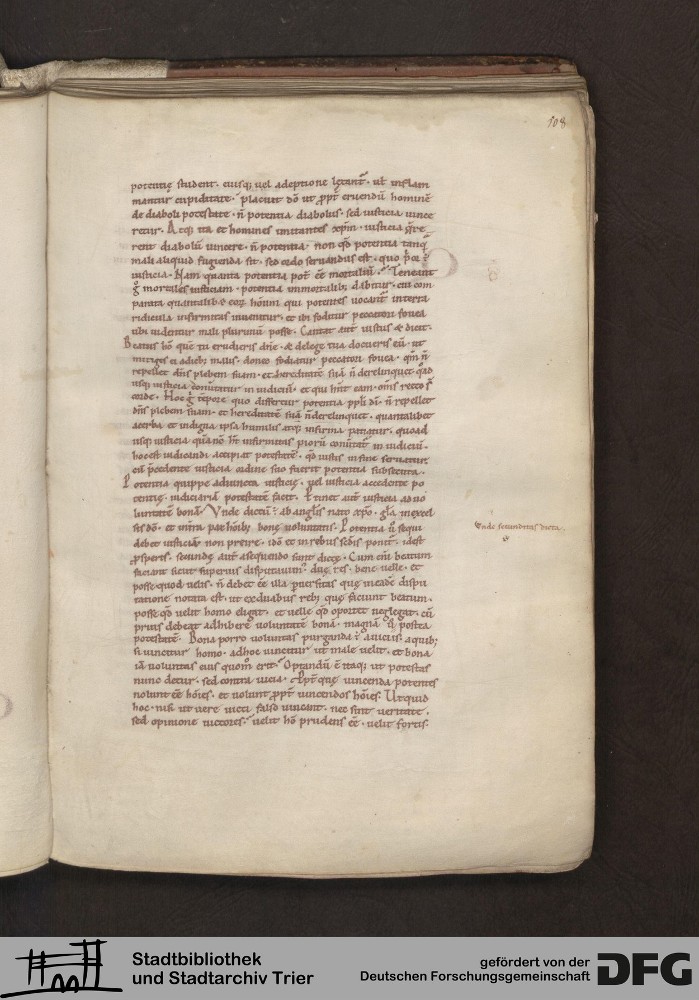 108
potentię student. eiusq; uel adeptione lętant᷑. ut inflam
mantur cupiditate. placuit dō ut ꝓpt̄ eruendū hominē
de diaboli potestate. n̄ potentia diabolus. sed iusticia uince
retur. Atq; ita et homines imitantes xp̄m. iusticia q̄rere
rent diabolū uincere. n̄ potentia. non qđ potentia tanq̄
mali aliquid fugienda sit. sed ordo seruandus est. quo p̄or ē
iusticia. Nam quanta potentia pot̄ ēē mortaliū. Teneant
g̊ mortales iusticiam. potentia immortalib; dabitur. cui com
parata quantalib& eorꝝ hōnum qui potentes uocant᷑ in terra
ridicula infirmitas inuenitur. et ibi foditur peccatori fouea
ubi uidentur mali plurimū posse. Cantat aut̄ iustus & dicit.
Beatus hō quē tu erudieris dn̄e. & de lege tua docueris eū. ut
mitiges ei a dieb; malis. donec fodiatur peccatori fouea. qm̄ n̄
repellet dn̄s plebem suam. et hereditatē suā n̄ derelinquet. q̊ad
usq; iusticia conuertatur in iudiciū. et qui hn̄t eam. om̄s recto s̄
corde. Hoc g̊ tēpore quo differtur potentia ppl̄i dī. n̄ repellet
dn̄s plebem suam. et hereditatē suā n̄ derelinquet. quantalibet
acerba et indigna ipsa humilis atq; infirma patiatur. quoad
usq; iusticia quā nc̄ h̄t infirmitas piorū conuertat᷑ in iudiciū.
hoc est iudicandi accipiat potestatē. qđ iustis in fine seruatur
cū p̄cedente iusticia ordine suo fuerit potentia subsecuta.
Potentia quippe adiuncta iusticię. uel iusticia accedente po
tentię. iudiciariā potestatē facit. Ptinet aut̄ iusticia ad uo
luntatē bonā. Vnde dictū ē ab anglis nato xp̄o. gl̄a in excel
sis dō. et in t̄ra pax hōib; bonę uoluntatis. Potentia ū sequi
debet iusticiā non preire. idō et in rebus scđis ponit᷑. idest
ꝓsperis. secundę aut̄ a sequendo sunt dictę. Cum eni beatum
faciant sicut superius disputauim᷒. duę res. bene uelle. et
posse quod uelis. n̄ debet ēē illa puersitas quę in eadē dispu
tatione notata est. ut ex duabus reb; quę faciunt beatum.
posse qđ uelit homo eligat. et uelle qđ oportet neglegat. cū
prius debeat adhibere uoluntatē bonā. magnā ū postea
potestatē. Bona porro uoluntas purganda ē a uiciis. a quib;
si uincitur homo. ad hoc uincitur ut male uelit. et bona
iā uoluntas eius quom̊ erit. Optandū ē itaq; ut potestas
nunc detur. sed contra uicia. ꝓpt̄ quę uincenda potentes
nolunt ēē hōies. et uolunt ꝓpt̄ uincendos hōies. Ut quid
hoc. nisi ut uere uicti falso uincant. nec sint ueritate.
sed opinione uictores. uelit hō prudens ēē. uelit fortis.
Vnde secunditas dicta.
Stadtbibliothek
und Stadtarchiv Trier
gefördert von der
Deutschen Forschungsgemeinschaft
DFG